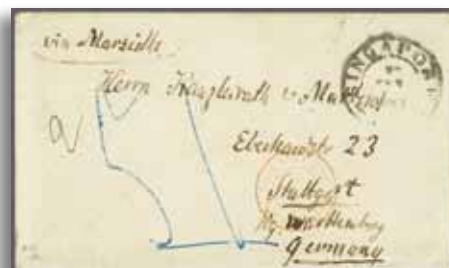 via Marseille
SINGAPORE
Herrn Kanzleirath v. Martens
Eberhardstr 23
Stuttgart
Kg. Württemberg
Germany